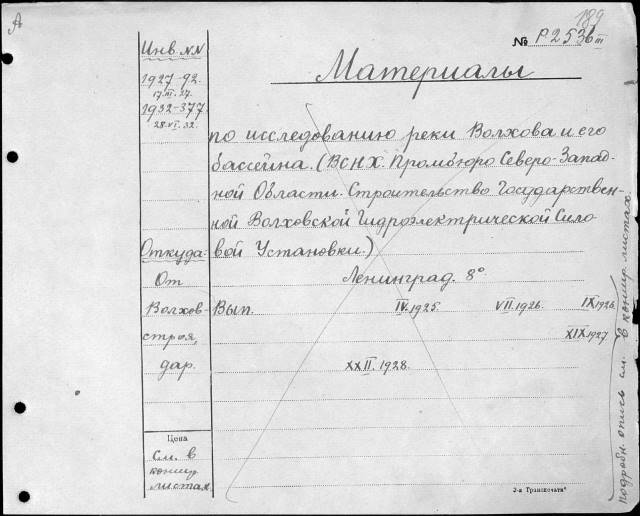 А
189
№ Р.2536 III
Инв. NN
1927-92.
17.III.27.
1932-377.
28.VI.32.
Материалы
по исследованию реки Волхова и его
бассейна. (ВСНХ. Промбюро Северо-Запад-
ной Области. Строительство Государствен-
ной Волховской Гидроэлектрической Сило-
вой Установки.)
Откуда:
От
Волхов-
строя,
дар.
Ленинград. 8°
Вып. IV.1925. VII.1926. IX.1926.
XIX.1927
XXII.1928.
Цена
См. в
концир
листах.
подробн. опись см. в концир листах
3-я Транспечать